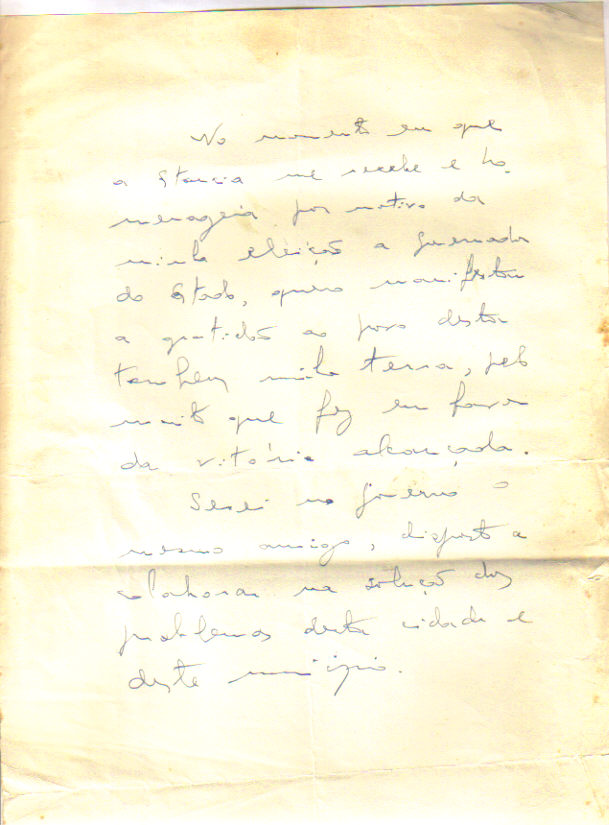 No momento em que
a Estancia me recebe e ho-
menageia por motivo da
minha eleição a Governador
do Estado, quero manifestar
a gratidão ao povo desta
tambem minha terra, pelo
muito que fez em favor
da vitória alcançada.
Serei no governo o
mesmo amigo, disposto a
colaborar na solução dos
problemas desta cidade e
deste municipio.